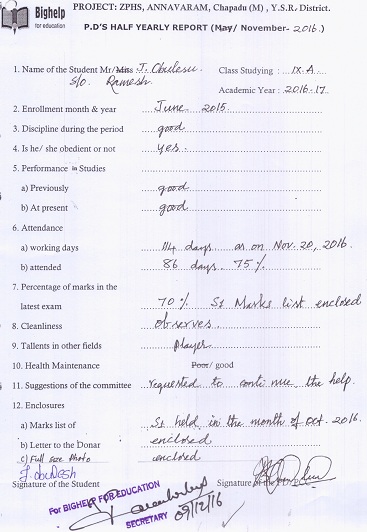 Bighelp
for education
PROJECT: ZPHS, ANNAVARAM, Chapadu (M), Y.S.R. District.
P.D'S HALF YEARLY REPORT (May/ November- 2016.)
1. Name of the Student Mr/Miss J. Obulesu. Class Studying : IX.A
S/o. Ramesh Academic Year : 2016-17
2. Enrollment month & year June 2015.
3. Discipline during the period good
4. Is he/ she obedient or not yes.
5. Performance in Studies
a) Previously good
b) At present good
6. Attendance
a) working days 114 days as on Nov. 20, 2016.
b) attended 86 days 75%
7. Percentage of marks in the
latest exam 70% S1 Marks list enclosed
8. Cleanliness observes.
9. Tallents in other fields Player
10. Health Maintenance Poor/ good
11. Suggestions of the committee requested to continue the help.
12. Enclosures
a) Marks list of S1 held in the month of oct. 2016.
b) Letter to the Donar enclosed
c) Full size photo enclosed
Signature of the Student Signature of the
For BIGHELP FOR EDUCATION
SECRETARY 09/12/16